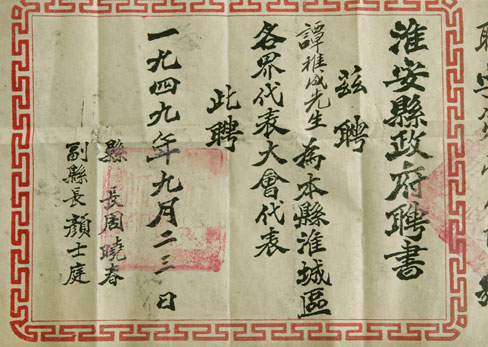 淮安縣政府聘書
兹聘
譚雅成先生為本縣淮城區
各界代表大會代表
此聘
一九四九年九月二三日
縣長周曉春
副縣長顏士庭